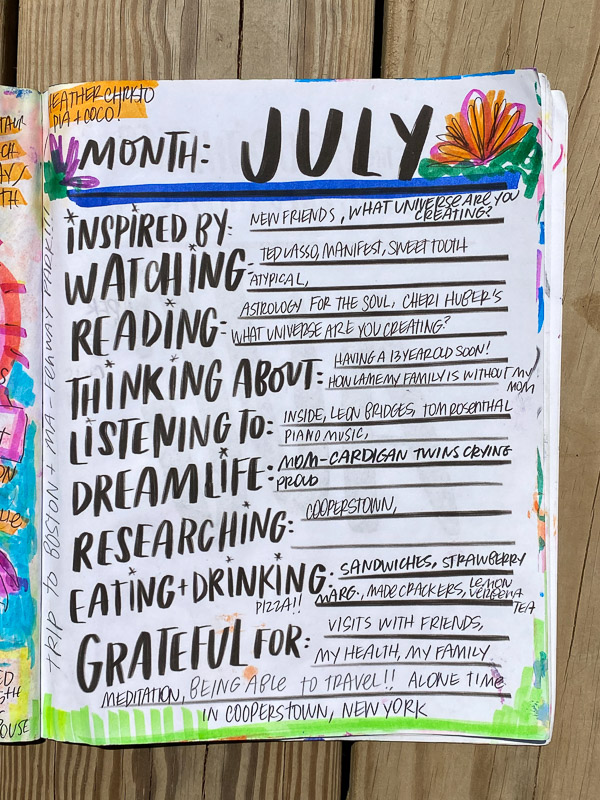 HEATHER CHRISTO
DIA + COCO!
MONTH: JULY
INSPIRED BY: NEW FRIENDS, WHAT UNIVERSE ARE YOU
CREATING?
WATCHING: TED LASSO, MANIFEST, SWEET TOOTH
ATYPICAL,
READING: ASTROLOGY FOR THE SOUL, CHERI HUBER'S
WHAT UNIVERSE ARE YOU CREATING?
THINKING ABOUT: HAVING A 13 YEAR OLD SOON!
HOW LAME MY FAMILY IS WITHOUT MY
MOM
LISTENING TO: INSIDE, LEON BRIDGES, TOM ROSENTHAL
PIANO MUSIC,
DREAM LIFE: MOM-CARDIGAN TWINS CRYING
PROUD
RESEARCHING: COOPERSTOWN,
EATING + DRINKING: SANDWICHES, STRAWBERRY
PIZZA!! MARG., MADE CRACKERS, LEMON
VERBENA
TEA
GRATEFUL FOR: VISITS WITH FRIENDS,
MY HEALTH, MY FAMILY.
MEDITATION, BEING ABLE TO TRAVEL!! ALONE TIME
IN COOPERSTOWN, NEW YORK
TRIP TO BOSTON + MA - FENWAY PARK!!!